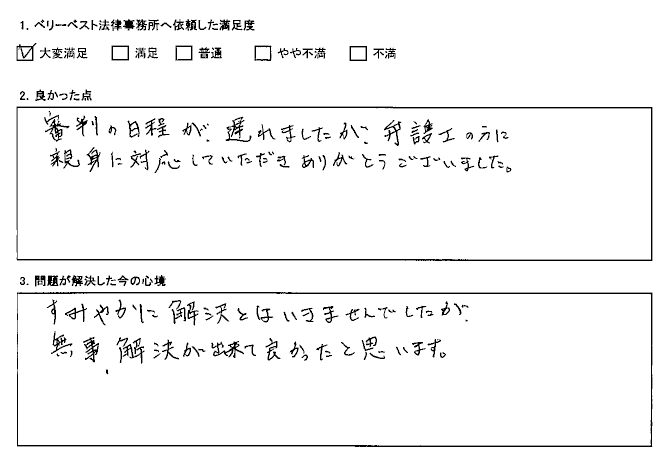 1. ベリーベスト法律事務所へ依頼した満足度
☑ 大変満足 ☐ 満足 ☐ 普通 ☐ やや不満 ☐ 不満
2. 良かった点
審判の日程が、遅れましたが、弁護士の方に
親身に対応していただきありがとうございました。
3. 問題が解決した今の心境
すみやかに解決とはいきませんでしたが、
無事、解決が出来て良かったと思います。